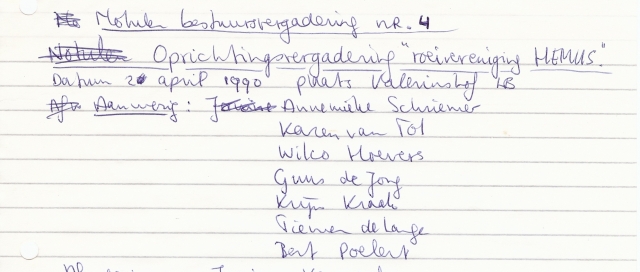 Notulen bestuursvergadering nr. 4
Oprichtingsvergadering "roeivereniging HEMUS."
Datum 20 april 1990 plaats
Aanwezig: Annemieke Schriemer
Karen van Tol
Wilco Hoevers
Guus de Jong
Krijn Kraak
Tiemen de Lange
Bert Poelert